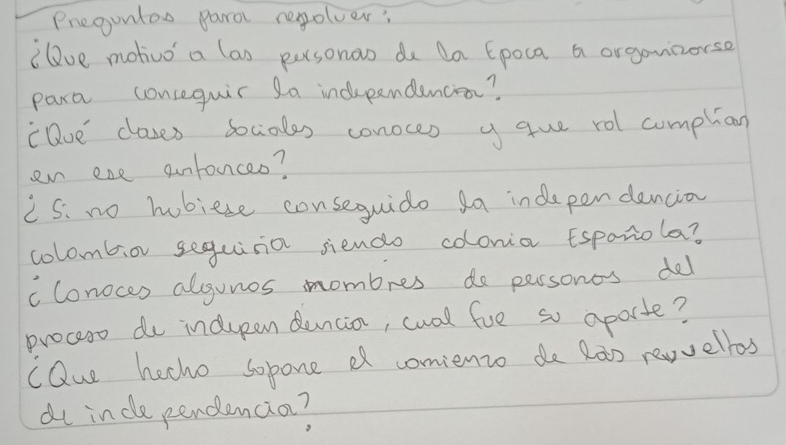 Preguntas para resolver:
¿Que motivó a las personas de la Epoca a organizarse
para conseguir la independencia?
¿Qué clases sociales conoces y que rol cumplian
en ese entonces?
¿Si no hubiese conseguido la independencia
colombia seguiria siendo colonia Española?
¿Conoces algunos nombres de personas del
proceso de independencia, cual fue su aporte?
¿Que hecho supone el comienzo de las revueltas
de independencia?